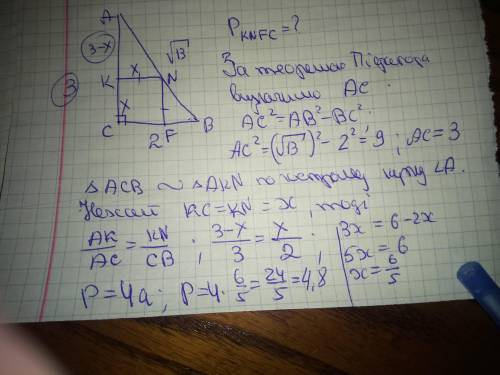 A
3-x
√13
K
x
N
3
x
C
2
F
B
P KNFC = ?
За теоремою Піфагора
визначимо AC.
AC² = AB² - BC²
AC² = (√13)² - 2² = 9; AC = 3
△ACB ~ △AKN по гострому куту ∠A.
Нехай KC = KN = x, тоді
AK/AC = KN/CB; (3-x)/3 = x/2;
3x = 6 - 2x
5x = 6
x = 6/5
P = 4a; P = 4 · 6/5 = 24/5 = 4,8